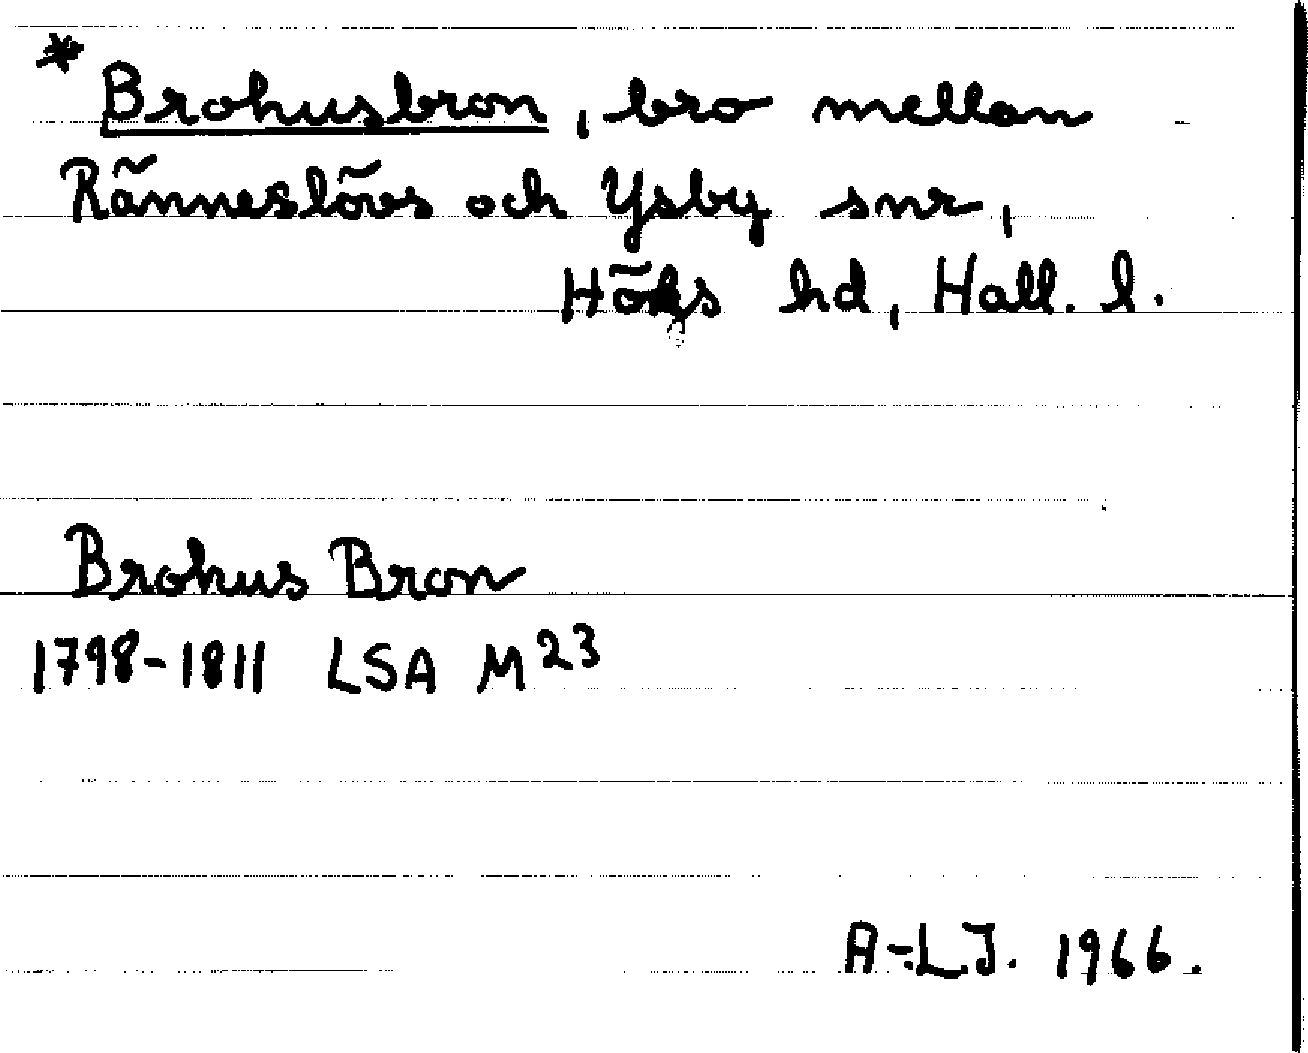 * Brohusbron, bro mellan
Ränneslövs och Ysby snr,
Höks hd, Hall. l.
Brohus Bron
1798-1811 LSA M23
A-L.J. 1966.